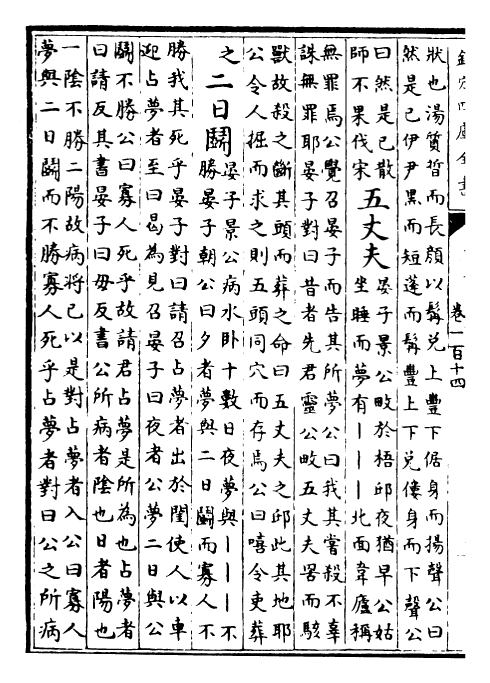 欽定四庫全書
卷一百十四
狀也湯質晳而長顔以髯兌上豐下倨身而揚聲公曰
然是已伊尹黑而短蓬而髯豐上下兌僂身而下聲公
曰然是已散
師不果伐宋
五丈夫
晏子景公畋於梧邱夜猶早公姑
坐睡而夢有丨丨丨北面韋廬稱
無罪焉公覺召晏子而告其所夢公曰我其嘗殺不辜
誅無罪耶晏子對曰昔者先君靈公畋五丈夫罟而駭
獸故殺之斷其頭而葬之命曰五丈夫之邱此其地耶
公令人掘而求之則五頭同穴而存焉公曰嘻令吏葬
之
二日鬭
晏子景公病水卧十數日夜夢與丨丨丨不
勝晏子朝公曰夕者夢與二日鬭而寡人不
勝我其死乎晏子對曰請召占夢者出於閨使人以車
迎占夢者至曰曷為見召晏子曰夜者公夢二日與公
鬭不勝公曰寡人死乎故請君占夢是所為也占夢者
曰請反其書晏子曰毋反書公所病者陰也日者陽也
一陰不勝二陽故病將已以是對占夢者入公曰寡人
夢與二日鬭而不勝寡人死乎占夢者對曰公之所病